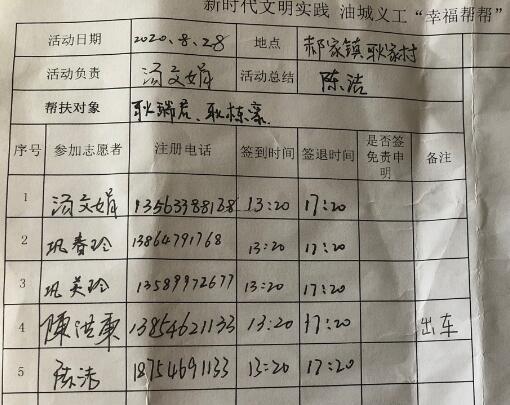 新时代文明实践 油城义工“幸福帮帮”
活动日期 2020.8.28 地点 郝家镇耿家村
活动负责 汤文娟 活动总结 陈洁
帮扶对象 耿瑞君、耿栋豪
序号 参加志愿者 注册电话 签到时间 签退时间 是否签免责申明 备注
1 汤文娟 13563388168 13:20 17:20
2 巩春玲 13864791768 13:20 17:20
3 巩英玲 13589972677 13:20 17:20
4 陳洪軍 13854621133 13:20 17:20 出车
5 陈洁 18754691133 13:20 17:20